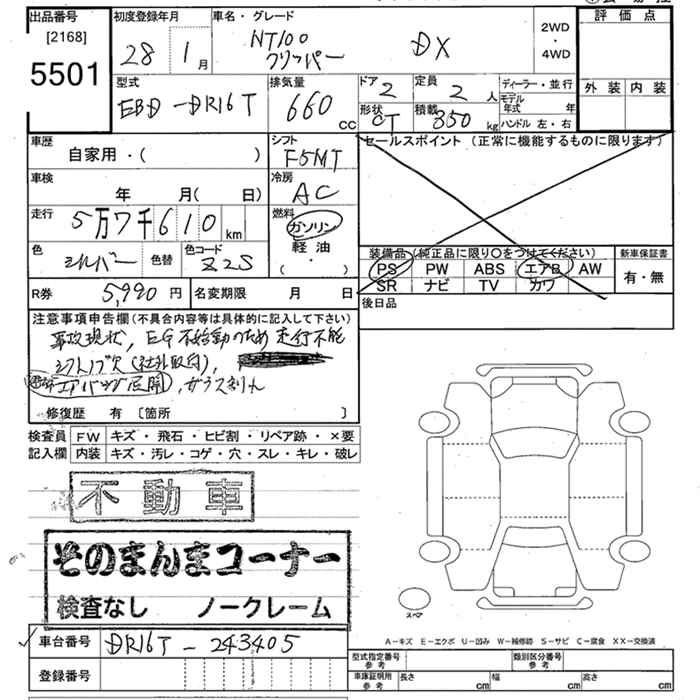 出品番号
[2168]
5501
初度登録年月
28 1月
車名・グレード
NT100
クリッパー DX
2WD
・
4WD
評価点
外装 内装
型式
EBD-DR16T
排気量
660 CC
ドア 2
定員 2 人
形状 CT
積載 350 kg
ディーラー・並行
モデル年式 年
ハンドル 左・右
車歴
自家用・( )
シフト
F5MT
セールスポイント (正常に機能するものに限ります)
車検
年 月( 日)
冷房
AC
走行
5万7千610 km
燃料
ガソリン
軽油
( ・ )
色
シルバー
色替
色コード
Z2S
装備品 (純正品に限り○をつけてください)
PS PW ABS エアB AW
SR ナビ TV カワ
新車保証書
有・無
R券 5,990 円
名変期限 月 日
後日品
注意事項申告欄 (不具合内容等は具体的に記入して下さい)
事故現状, EG不始動のため走行不能
シフトノブ欠(社外取付),
エアバッグ展開, ガラス割れ
修復歴 有 〔箇所 〕
検査員
記入欄
FW キズ・飛石・ヒビ割・リペア跡・×要
内装 キズ・汚レ・コゲ・穴・スレ・キレ・破レ
不動車
そのまんまコーナー
検査なし ノークレーム
スペア
A-キズ E-エクボ U-凹み W-補修跡 S-サビ C-腐食 XX-交換済
車台番号 DR16T-243405
登録番号
型式指定番号
参考
類別区分番号
参考
車庫証明用
参考
長さ cm
幅 cm
高さ cm